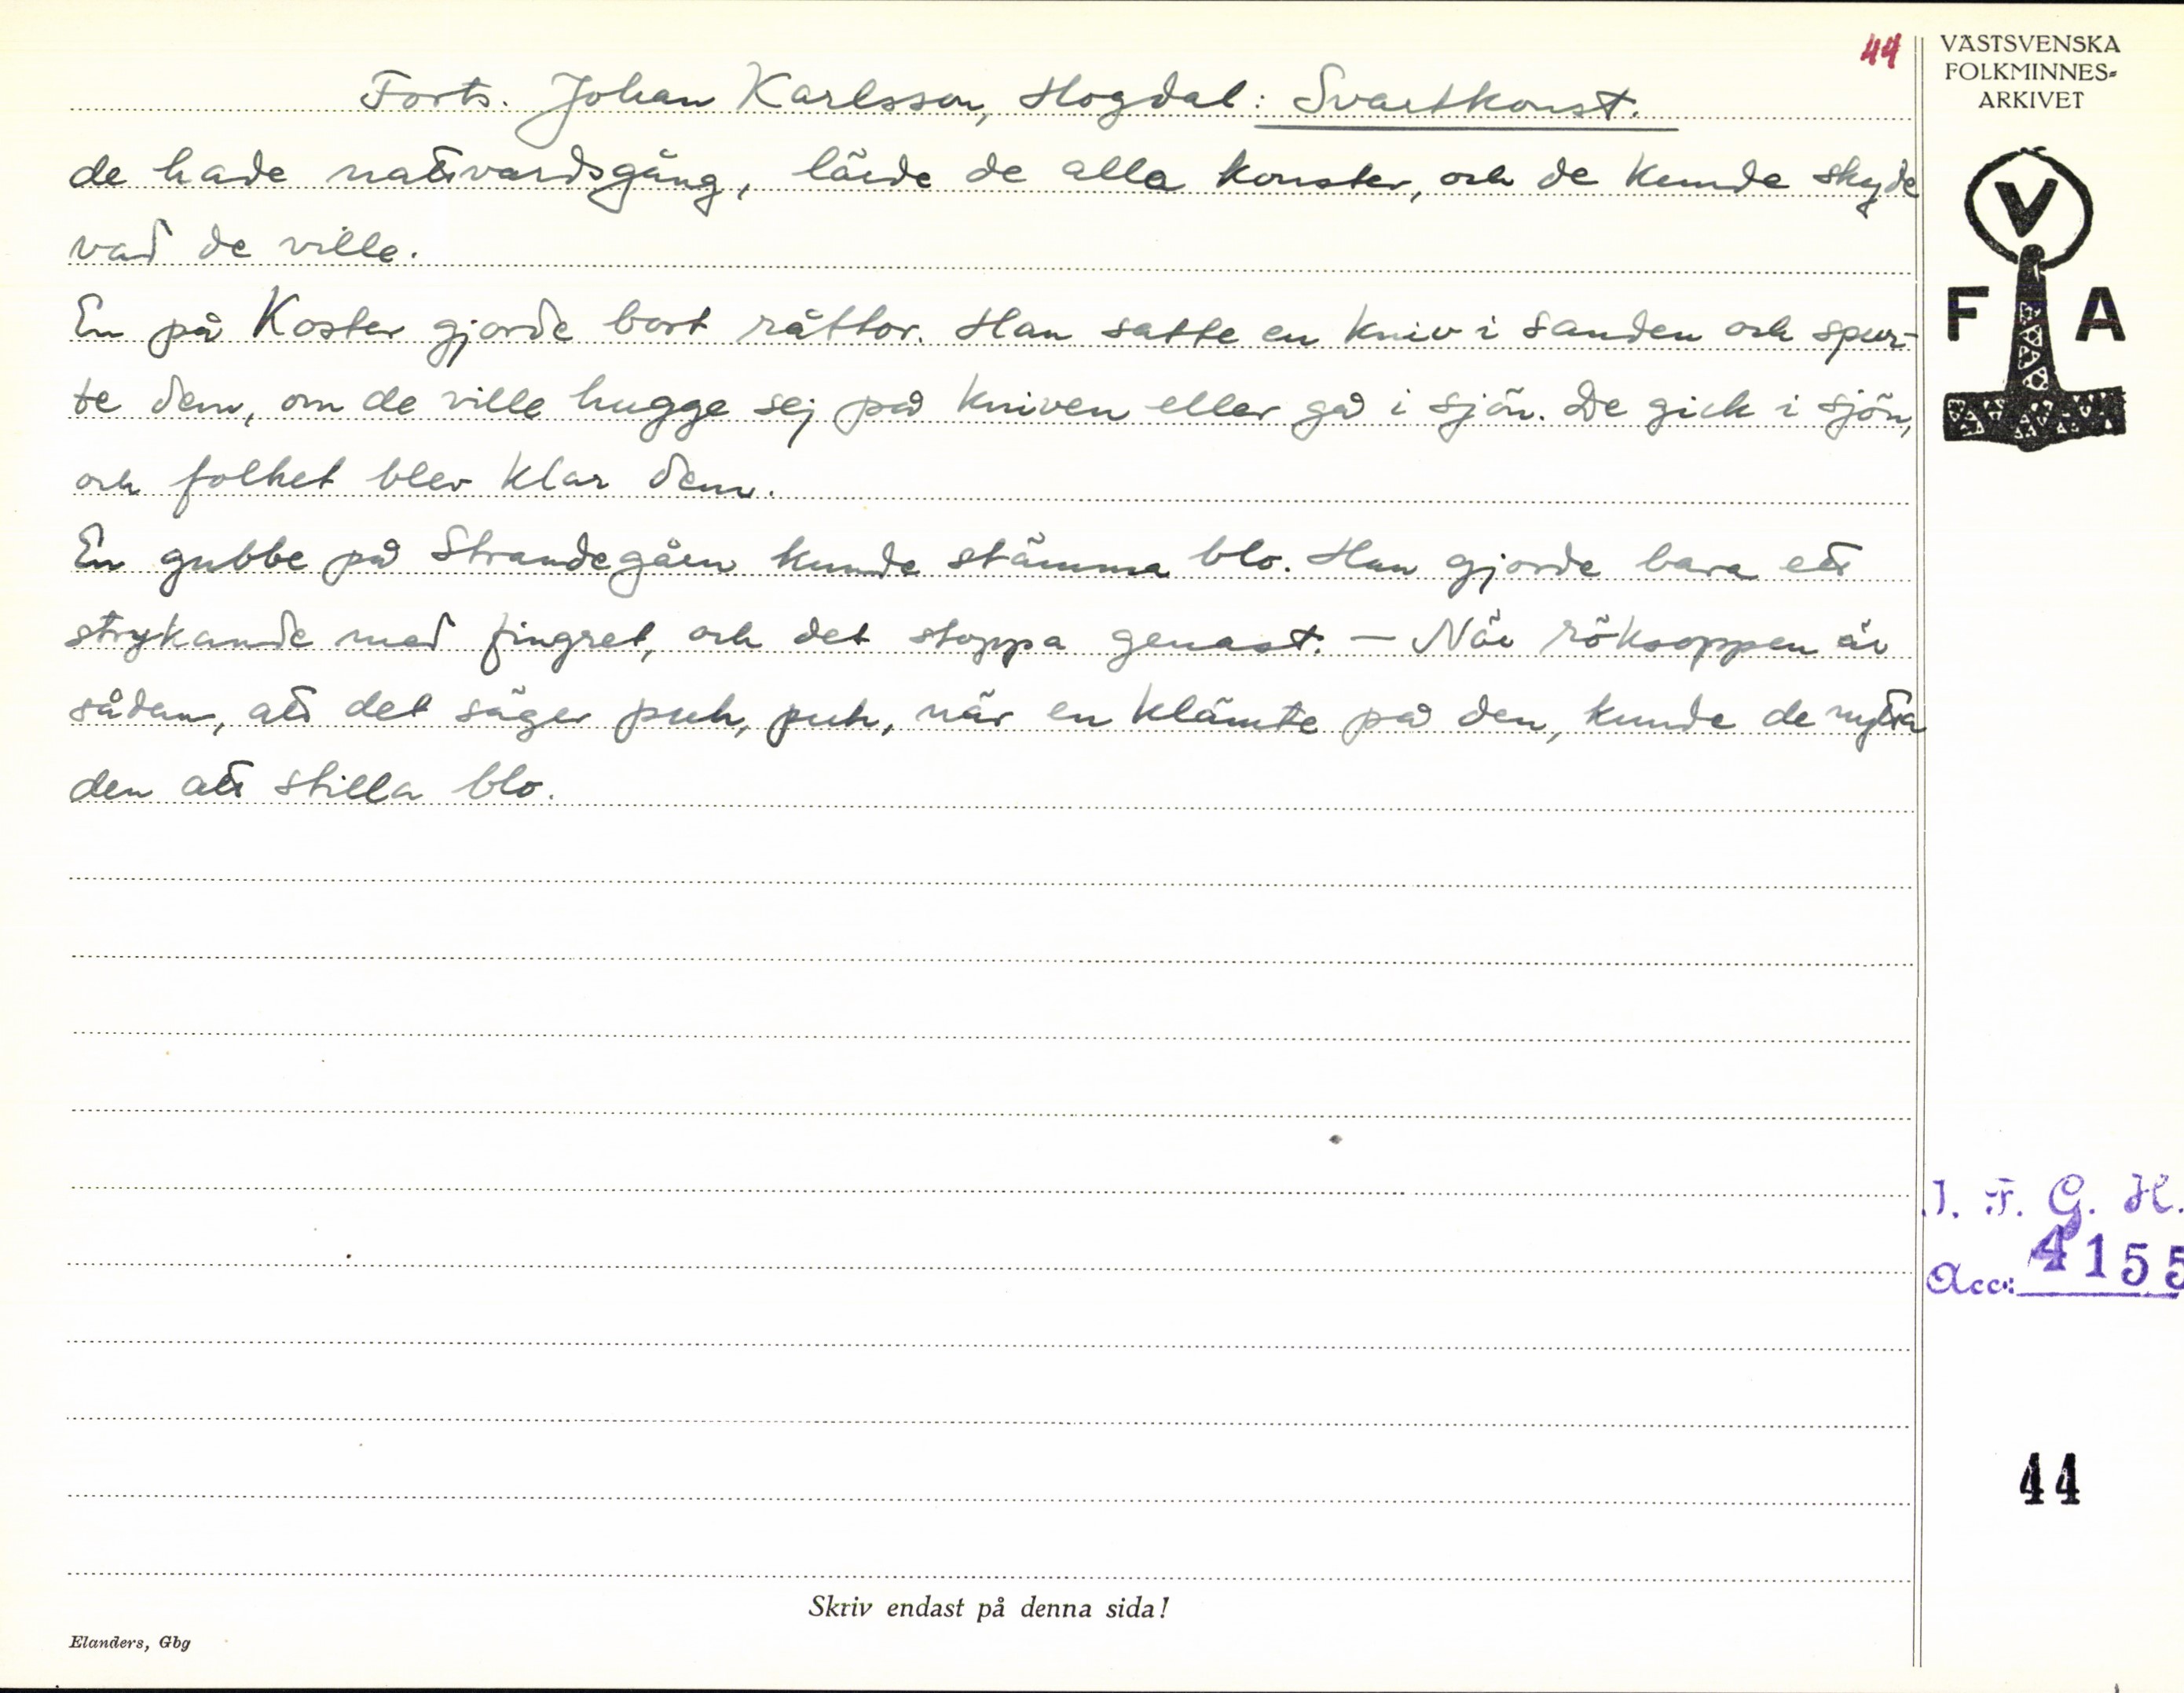 44
Forts. Johan Karlsson, Hogdal: Svartkonst.
de hade nattvardsgång, lärde de alla konster, och de kunde skyde
vad de ville.
En på Koster gjorde bort råttor. Han satte en kniv i sanden och spur-
te dem, om de ville hugge sej på kniven eller gå i sjön. De gick i sjön,
och folket blev klar dem.
En gubbe på Strandegårn kunde stämma blo. Han gjorde bara ett
strykande med fingret, och det stoppa genast. — När röksoppen är
sådan, att det säger puh, puh, när en klämte på den, kunde de nytta
den att stilla blo.
VÄSTSVENSKA
FOLKMINNES-
ARKIVET
V
F A
I. F. G. H.
Acc: 4155
44
Skriv endast på denna sida!
Elanders, Gbg